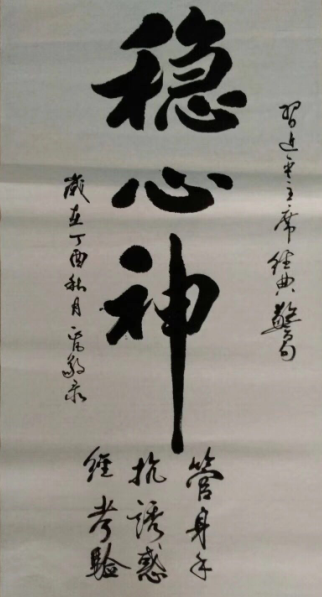 习近平主席经典警句
稳心神
管身手
抗诱惑
经考验
岁在丁酉秋月
敬录